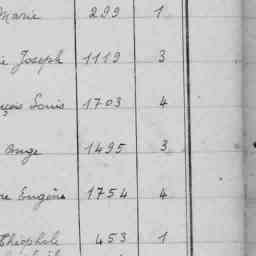 Marie 299 1
Joseph 1119 3
Louis 1703 4
Ange 1495 3
Eugène 1754 4
Théophile 453 1